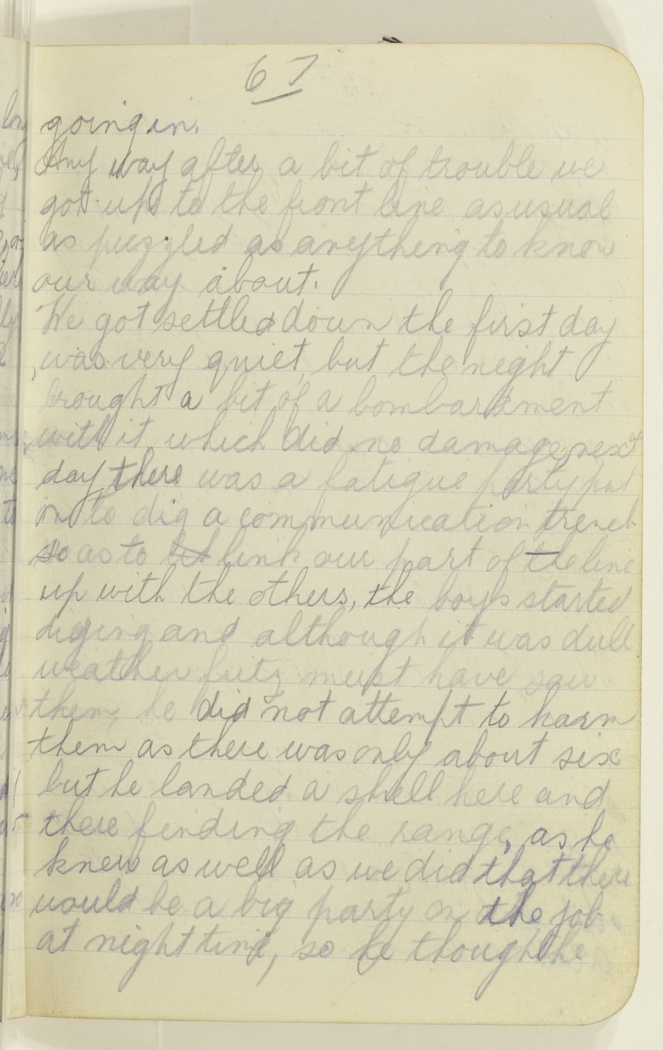 67
going in.
Any way after a bit of trouble we
got up to the front line as usual
as puzzled as anything to know
our way about.
We got settled down the first day
was very quiet, but the night
brought a bit of a bombardment
with it, which did no damage, next
day there was a fatigue party put
on to dig a communication trench
so as to link our part of the line
up with the others, the boys started
diging and although it was dull
weather fritz must have saw
them, he did not attempt to harm
them as there was only about six
but he landed a shell here and
there finding the range, as he
knew as well as we did that there
would be a big party on the job
at night time, so he thought he